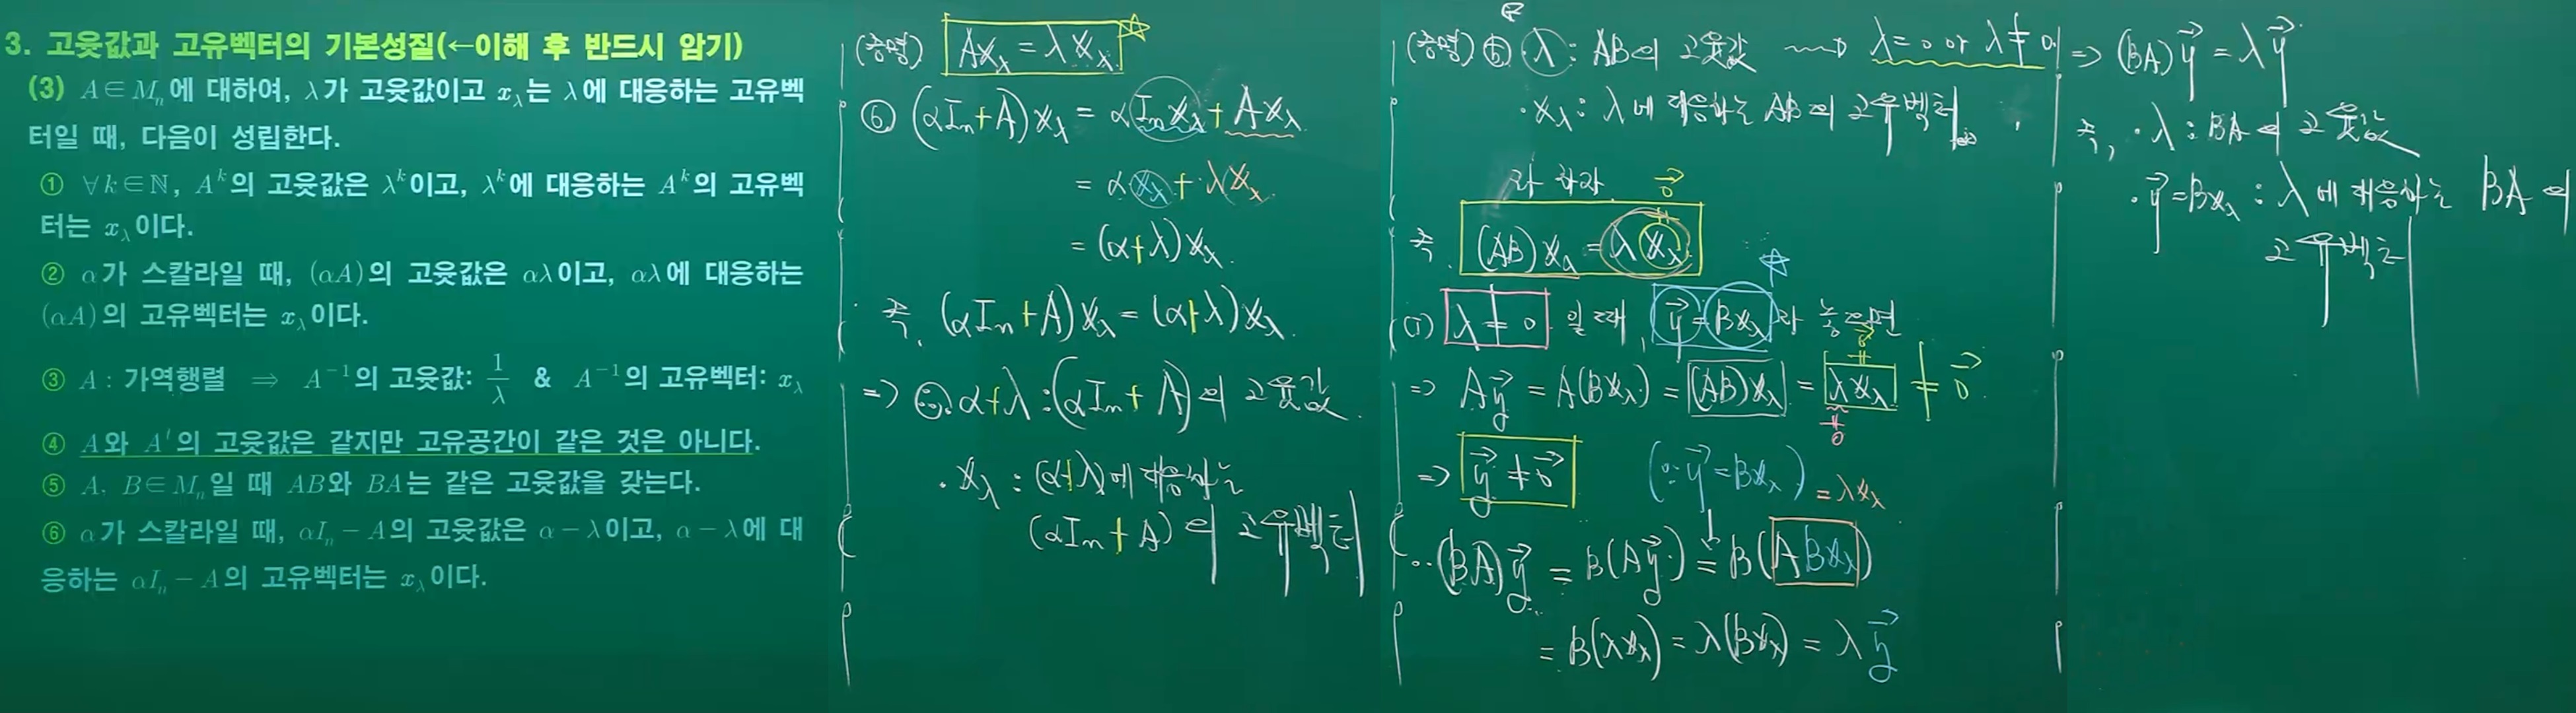 3. 고윳값과 고유벡터의 기본성질(←이해 후 반드시 암기)
(3) A∈Mₙ에 대하여, λ가 고윳값이고 x_λ는 λ에 대응하는 고유벡
터일 때, 다음이 성립한다.
① ∀k∈ℕ, Aᵏ의 고윳값은 λᵏ이고, λᵏ에 대응하는 Aᵏ의 고유벡
터는 x_λ이다.
② α가 스칼라일 때, (αA)의 고윳값은 αλ이고, αλ에 대응하는
(αA)의 고유벡터는 x_λ이다.
③ A : 가역행렬 ⇒ A⁻¹의 고윳값: 1/λ & A⁻¹의 고유벡터: x_λ
④ A와 Aᵗ의 고윳값은 같지만 고유공간이 같은 것은 아니다.
⑤ A, B∈Mₙ일 때 AB와 BA는 같은 고윳값을 갖는다.
⑥ α가 스칼라일 때, αIₙ-A의 고윳값은 α-λ이고, α-λ에 대
응하는 αIₙ-A의 고유벡터는 x_λ이다.
(증명) Ax_λ = λx_λ ☆
⑥ (αIₙ+A)x_λ = αIₙx_λ + Ax_λ
= αx_λ + λx_λ
= (α+λ)x_λ
즉, (αIₙ+A)x_λ = (α+λ)x_λ
⇒ α+λ : (αIₙ+A)의 고윳값
· x_λ : (α+λ)에 대응하는
(αIₙ+A)의 고유벡터
(증명) ⑤ λ : AB의 고윳값 → λ=0 or λ≠0
· x_λ : λ에 대응하는 AB의 고유벡터
라 하자
즉, (AB)x_λ = λx_λ ≠ 0⃗
(i) λ≠0 일 때, y⃗=Bx_λ라 놓으면 ☆
⇒ Ay⃗ = A(Bx_λ) = (AB)x_λ = λx_λ ≠ 0⃗
⇒ y⃗ ≠ 0⃗ (∵ y⃗=Bx_λ) = λx_λ
·· (BA)y⃗ = B(Ay⃗) = B(ABx_λ)
= B(λx_λ) = λ(Bx_λ) = λy⃗
⇒ (BA)y⃗ = λy⃗
즉, · λ : BA의 고윳값
· y⃗=Bx_λ : λ에 대응하는 BA의
고유벡터